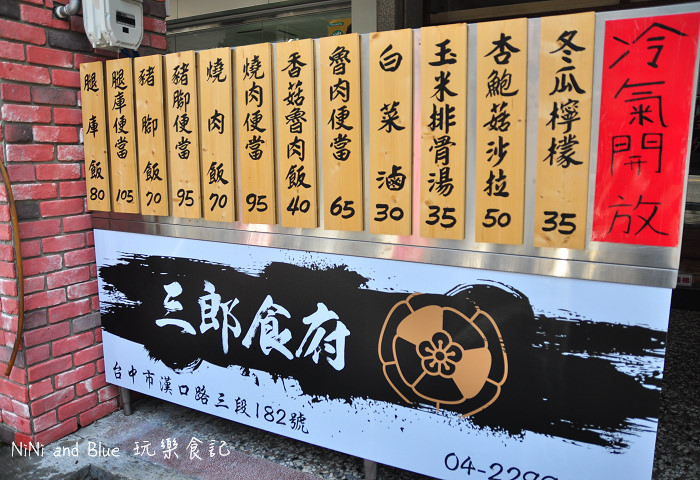 腿庫飯 80
腿庫便當 105
豬脚飯 70
豬脚便當 95
燒肉飯 70
燒肉便當 95
香菇魯肉飯 40
魯肉便當 65
白菜滷 30
玉米排骨湯 35
杏鮑菇沙拉 50
冬瓜檸檬 35
冷氣開放
三郎食府
台中市漢口路三段182號
04-229
NiNi and Blue 玩樂食記